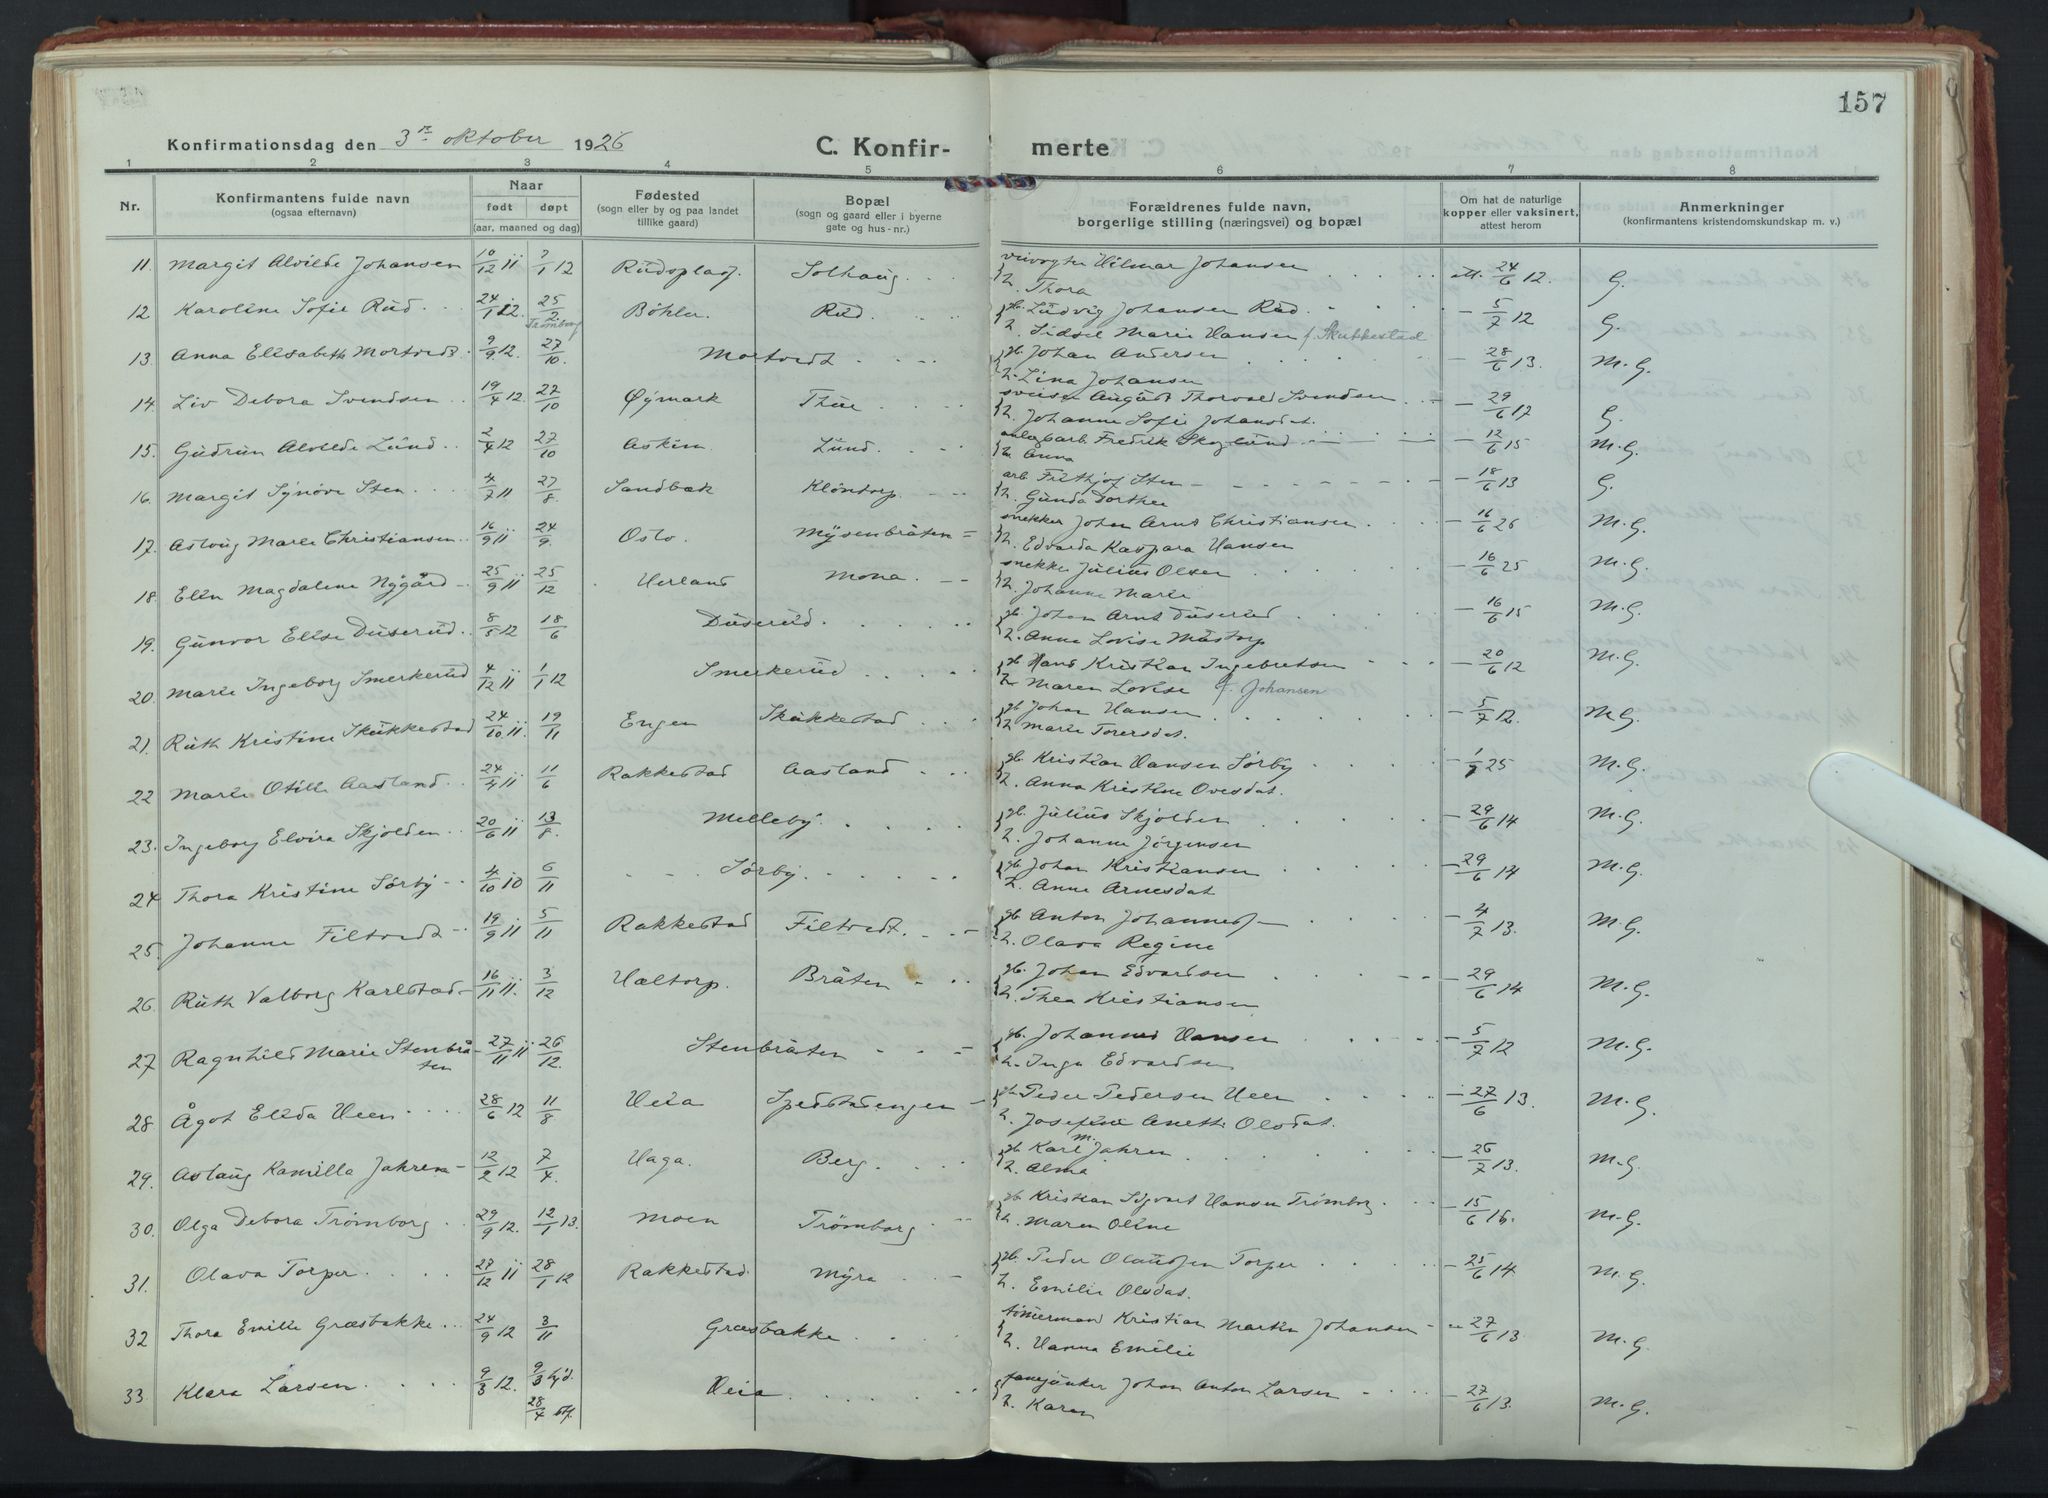 157
Konfirmationsdag den 3 oktober 1926 C. Konfir- merte
1 2 3 4 5 6 7 8
Nr. Konfirmantens fulde navn (ogsaa efternavn) Naar født døpt (aar, maaned og dag) Fødested (sogn eller by og paa landet tillike gaard) Bopæl (sogn og gaard eller i byerne gate og hus-nr.) Forældrenes fulde navn, borgerlige stilling (næringsvei) og bopæl Om hat de naturlige kopper eller vaksinert, attest herom Anmerkninger (konfirmantens kristendomskundskap m. v.)
11. Margit Alvilde Johansen 10/12 11 7/1 12 Rudsplass. Solhaug Hilmar Johansen att. 24/6 12. G.
h. Thora
12. Karoline Sofie Rud 24/1 12. 25/2. Trømborg Böhler. Rud gb. Ludvig Johansen Rud - 5/7 12 G.
h. Sidsel Marie Hansen f. Skukkestad
13. Anna Elisabeth Mortvedt 9/9 12. 27/10. Mortvedt gb. Johan Andersen - 28/6 13. M.G.
h. Lina Johansen
14. Liv Debora Svendsen 19/4 12. 27/10 Øymark Thue sveiser August Thorvald Svendsen - 29/6 17 G.
h. Johanne Sofie Johansdat.
15. Gudrun Alvilde Lund 2/4 12 27/10 Askim Lund. anlægsarb. Fredrik Skoglund - 12/6 15 M.G.
h. Anna
16. Margit Synøve Sten 4/7 11 27/8. Sandbæk Kløntorp. arb. Frithjof Sten - 18/6 13 G.
h. Gunda Dorthea
17. Aslaug Marie Christiansen 16/9 11 24/9. Oslo. Mysenbråten snekker Johan Arnt Christiansen - 16/6 26 M.G.
h. Edvarda Kaspara Hansen
18. Elin Magdalene Nygård 25/9 11 25/12 Herland Mona snekker Julius Olsen - 16/6 25 M.G.
h. Johanne Marie
19. Gunvor Elise Duserud 8/5 12 18/6 Duserud gb. Johan Arnt Duserud - 16/6 15 M.G.
h. Anna Lovise Måstorp
20. Marie Ingeborg Smerkerud 4/12 11 1/1 12 Smerkerud gb Hans Kristian Ingebretsen - 20/6 12 M.G.
h. Maren Lovise f. Johansen
21. Ruth Kristine Skukkestad 24/10 11. 19/11 Engen Skukkestad gb Johan Hansen - 5/7 12. M.G.
h. Marie Torersdat.
22 Marie Otilie Aasland 24/4 11 11/6 Rakkestad Aasland gb. Kristian Hansen Sørby - 1/7 25 M.G.
h. Anna Kristine Ovesdat.
23. Ingeborg Elvira Skjolden 20/6 11 13/8. Melleby. gb. Julius Skjolden - 29/6 14 M.G.
h. Johanne Jørgensen
24 Thora Kristine Sørby 4/10 10 6/11 Sørby gb. Johan Kristiansen - 29/6 14 M.G.
h. Anne Arnesdat
25. Johanne Filtvedt 19/9 11 5/11 Rakkestad Filtvedt. gb. Anton Johannes - 4/7 13. M.G.
h. Olava Regine
26 Ruth Valborg Karlstad 16/11 11. 3/12 Haltorp. Bråten gb. Johan Edvardsen - 29/6 14 M.G.
h. Thea Kristiansen
27 Ragnhild Marie Stenbråten 27/11 11 26/12. Stenbråten gb. Johannes Hansen - 5/7 12 M.G.
h. Inga Edvardsen
28. Ågot Elida Heen 28/6 12 11/8 Heia Spedstadengen gb. Peder Pedersen Heen - 27/6 13. M.G.
h. Josefine Anette Olsdat.
29. Aslaug Kamilla Jahren 12/2 12 7/4. Haga. Berg gb Karl M. Jahren - 26/7 13. M.G.
h. Alma
30. Olga Debora Trømborg 29/9 12. 12/1 13. Moen Trømborg gb Kristian Sigvart Hansen Trømborg - 15/6 16. M.G.
h. Maren Oline
31. Olava Torper 27/12 11 28/1 12 Rakkestad. Myra gb. Peder Olaussen Torper - 25/6 14 M.G.
h. Emilie Olsdat.
32 Thora Emilie Græsbakke 24/9 12 3/11 Græsbakke tømermand Kristian Martin Johansen - 27/6 13 M.G.
h. Hanna Emilie
33. Klara Larsen 9/3 12. 9/3 hjd. 28/4 stf. Heia fanejunker Johan Anton Larsen - 27/6 13. M.G.
h. Karen